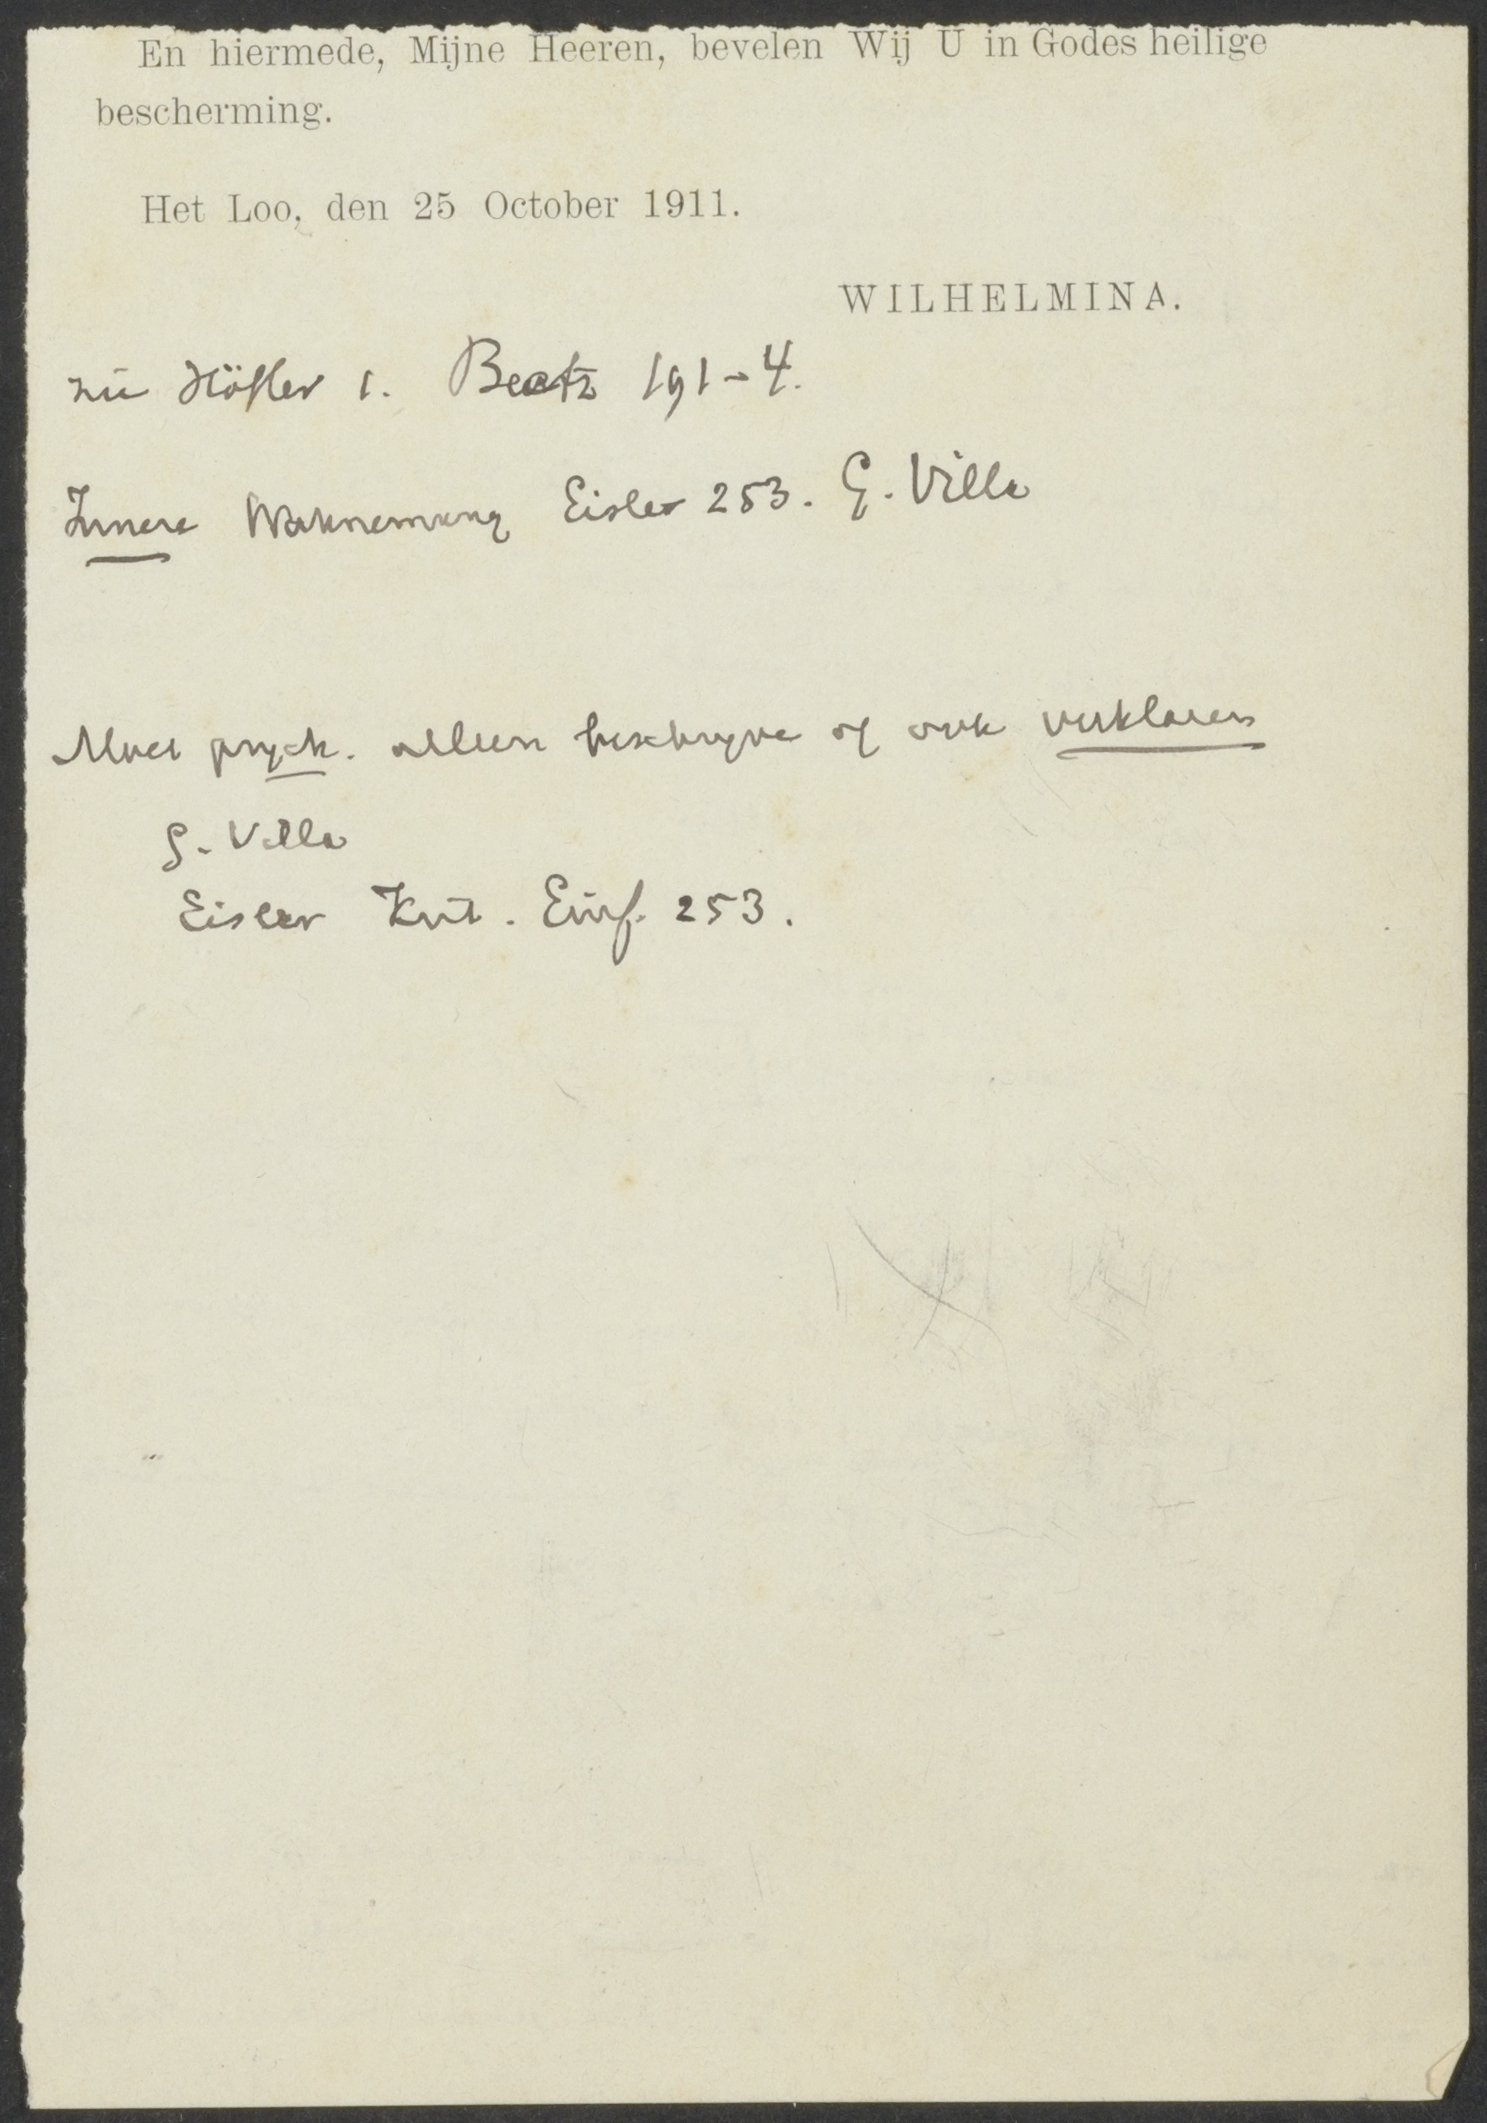 En hiermede, Mijne Heeren, bevelen Wij U in Godes heilige
bescherming.
Het Loo, den 25 October 1911.
WILHELMINA.
Höfler 1. 191-4.
Innere Waknemung Eisler 253. G. Villa
Moet psych. alleen beschryve of ook verklaren
G. Villa
Eisler Krit. Einf. 253.